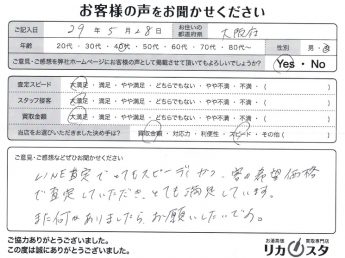 お客様の声をお聞かせください
ご記入日 29年5月28日 お住いの都道府県 大阪府
年齢 20代・30代・40代・50代・60代・70代・80代～ 性別 男・女
ご意見・ご感想を弊社ホームページにお客様の声として掲載させて頂いてもよろしいでしょうか？ Yes・No
査定スピード 大満足・満足・やや満足・どちらでもない・やや不満・不満・( )
スタッフ接客 大満足・満足・やや満足・どちらでもない・やや不満・不満・( )
買取金額 大満足・満足・やや満足・どちらでもない・やや不満・不満・( )
当店をお選びいただきました決め手は？ 買取金額・対応力・利便性・スピード・その他( )
ご意見・ご感想などぜひお聞かせください
LINE査定でとてもスピーディかつ、客の希望価格
で査定していただき、とても満足しています。
また何かありましたら、お願いしたいです。
ご協力ありがとうございました。
この度は誠にありがとうございました。
お酒高価買取専門店
リカスタ